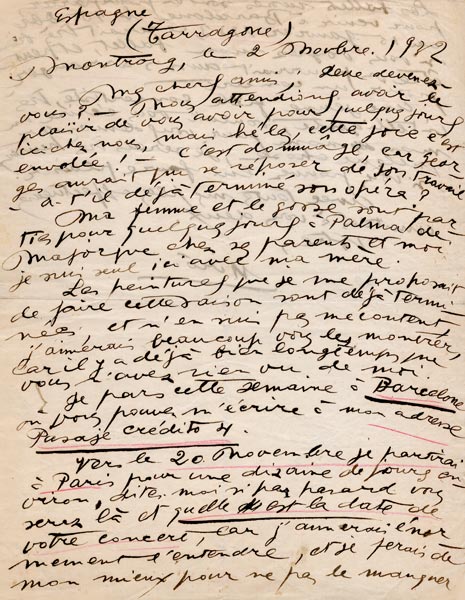 Espagne
(Tarragone)
Montroig, a 2 Novbre. 1932
Mes chers amis, Que devenez
vous? Nous attendions avoir le
plaisir de vous avoir pour quelques jours
ici chez nous, mais hélas, cette joie s'est
envolée! - C'est dommage, car Geor-
ges aurait pu se reposer de son travail
- a t'il déjà terminé son opéra?
Ma femme et le gosse sont par-
tis pour quelques jours à Palma de
Majorque chez ses parents et moi
je suis seul ici avec ma mère.
Les peintures que je me proposait
de faire cette saison sont déjà termi-
nées et n'en suis pas mécontent
j'aimerais beaucoup vous les montrer,
car il y a déjà bien longtemps que
vous n'avez rien vu de moi.
Je pars cette semaine à Barcelone
où vous pouvez m'écrire à mon adresse
Pasage crédito 4.
Vers le 20 Novembre je partirai
à Paris pour une dizaine de jours en-
viron, dites moi si par hasard vous
serez là et quelle est la date de
votre concert, car j'aimerais énor-
mement l'entendre, et je ferais de
mon mieux pour ne pas le manquer